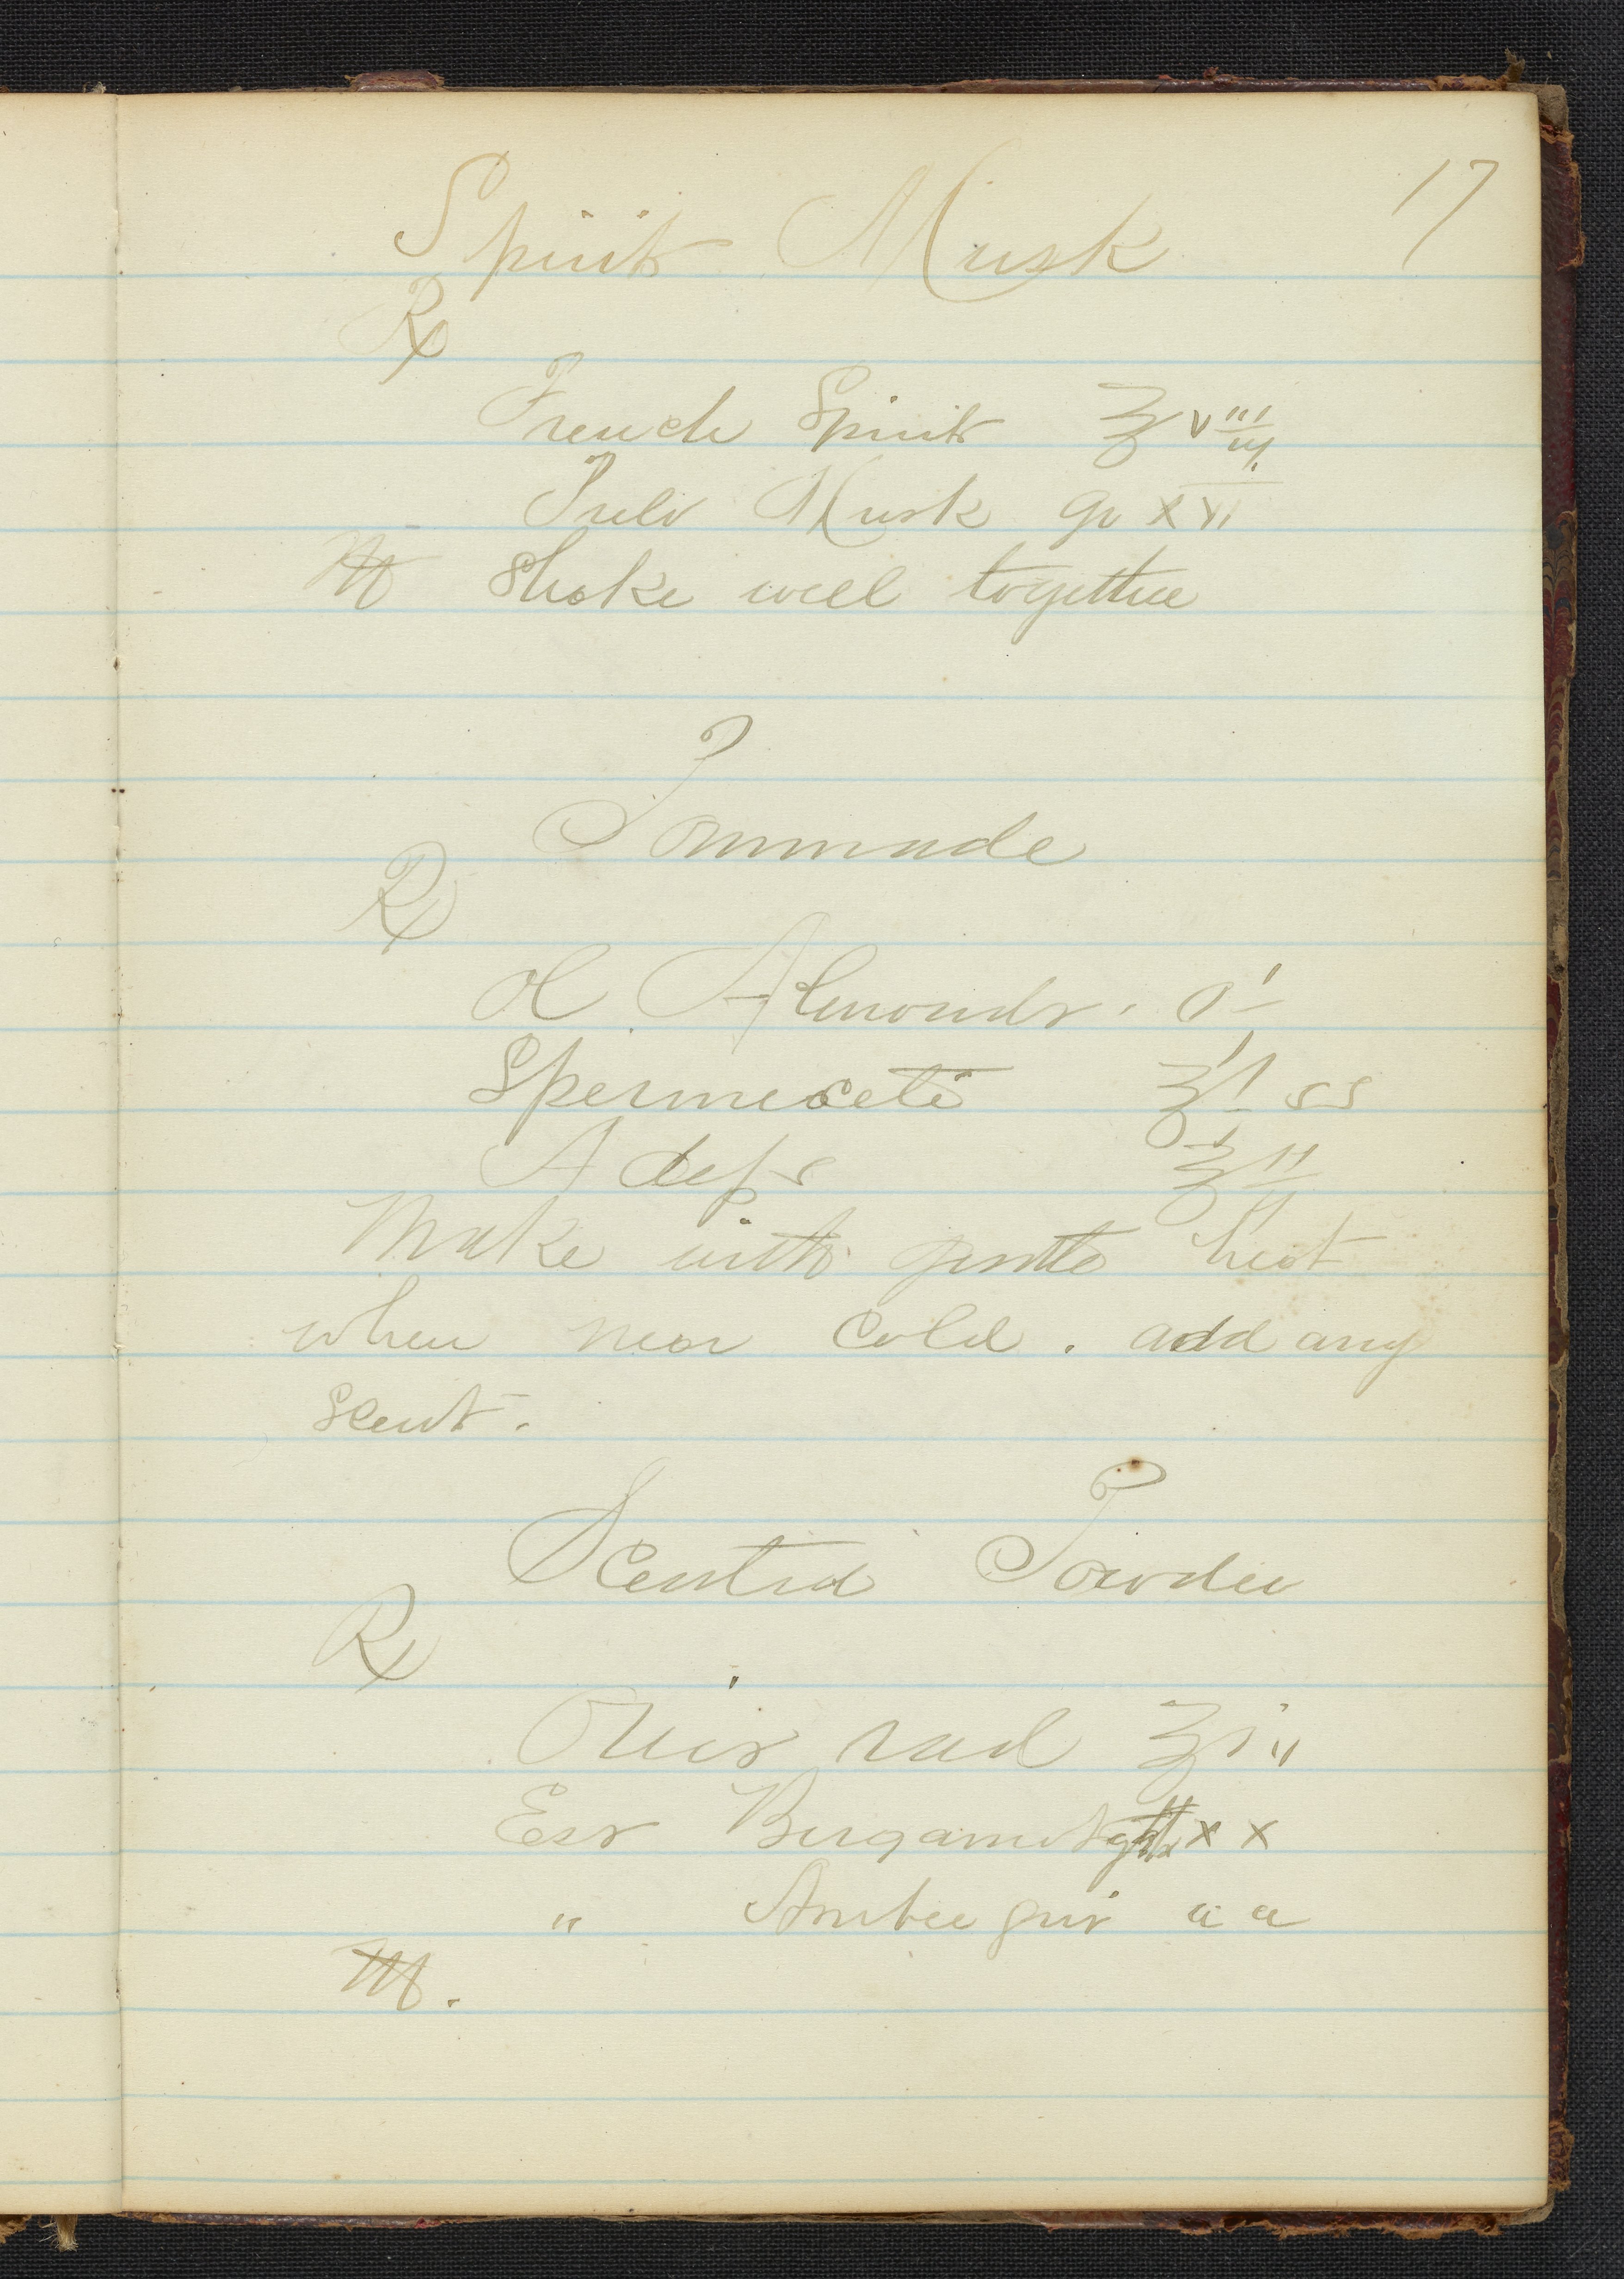 17
Spirit Musk
℞
French Spirit ℥ viii
Pulv Musk gr xvi
M Shake well together
Pommade
℞
Ol Almonds. O i
Spermeceti ℥ i ss
Adeps ℥ ii
Make with gentle heat
when near cold. add any
Scent.
Scented Powder
℞
Orris rad ℥ iii
Ess Bergamot gtt xx
" Ambergris aa
M.